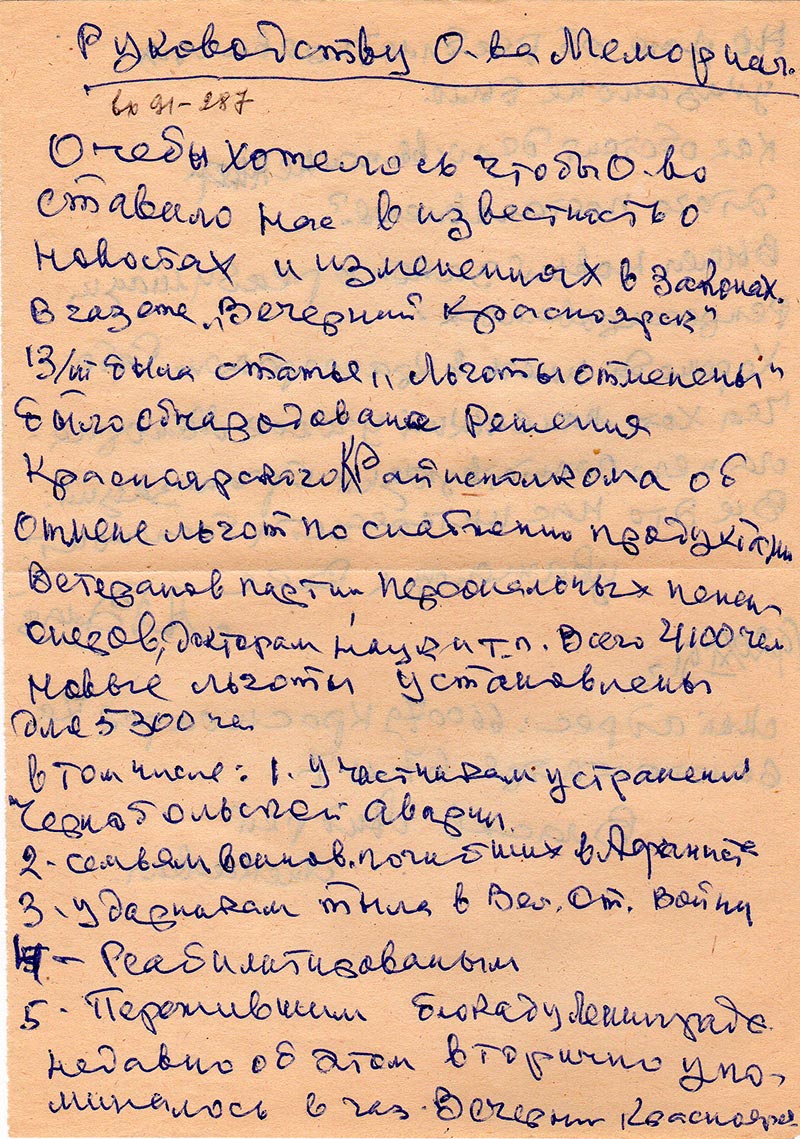 Руководству О-ва Мемориал.
вх 91-287
Очебы хотелось чтобы О-во
ставило нас в известность о
новостях и изменениях в законах.
В газете „Вечерний Красноярск"
13/III была статья „Льготы отменены"
было обнародовано Решения
Красноярского Крайисполкома об
отмене льгот по снабжению продуктами
Ветеранов партии, персональных пенси-
онеров, докторам наук и т-п. Всего 4100 чел
новые льготы установлены
для 5300 чел
в том числе: 1. Участникам устранения
Чернобольской аварии.
2. семьям воинов. погибших в Афганиста
3. ударникам тыла в Вел. От. Войну
4 - Реабилитированым
5. Пережившим блокаду Ленинграда
недавно об этом вторично упо-
миналось в газ. Вечерний Красноярск